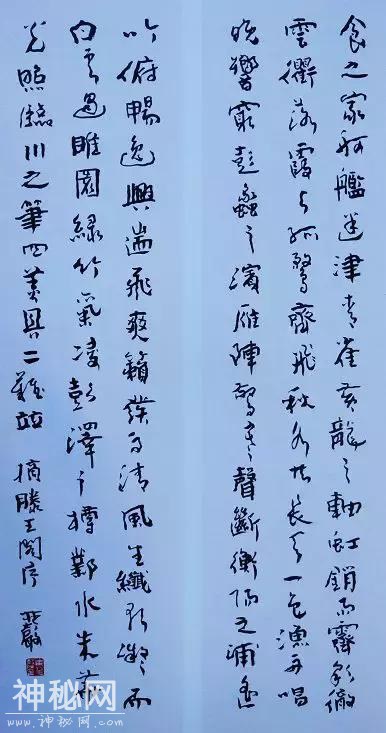 食之家舸艦迷津青雀黃龍之軸虹銷雨霽彩徹
雲衢落霞与孤鶩齊飛秋水共長天一色漁舟唱
晚響窮彭蠡之濱雁陣驚寒聲斷衡陽之浦遙
吟俯暢逸興遄飛爽籟發而清風生纖歌凝而
白雲遏睢園綠竹氣凌彭澤之樽鄴水朱華
光照臨川之筆四美具二難並 摘滕王閣序
神秘网
WWW.神秘网.COM